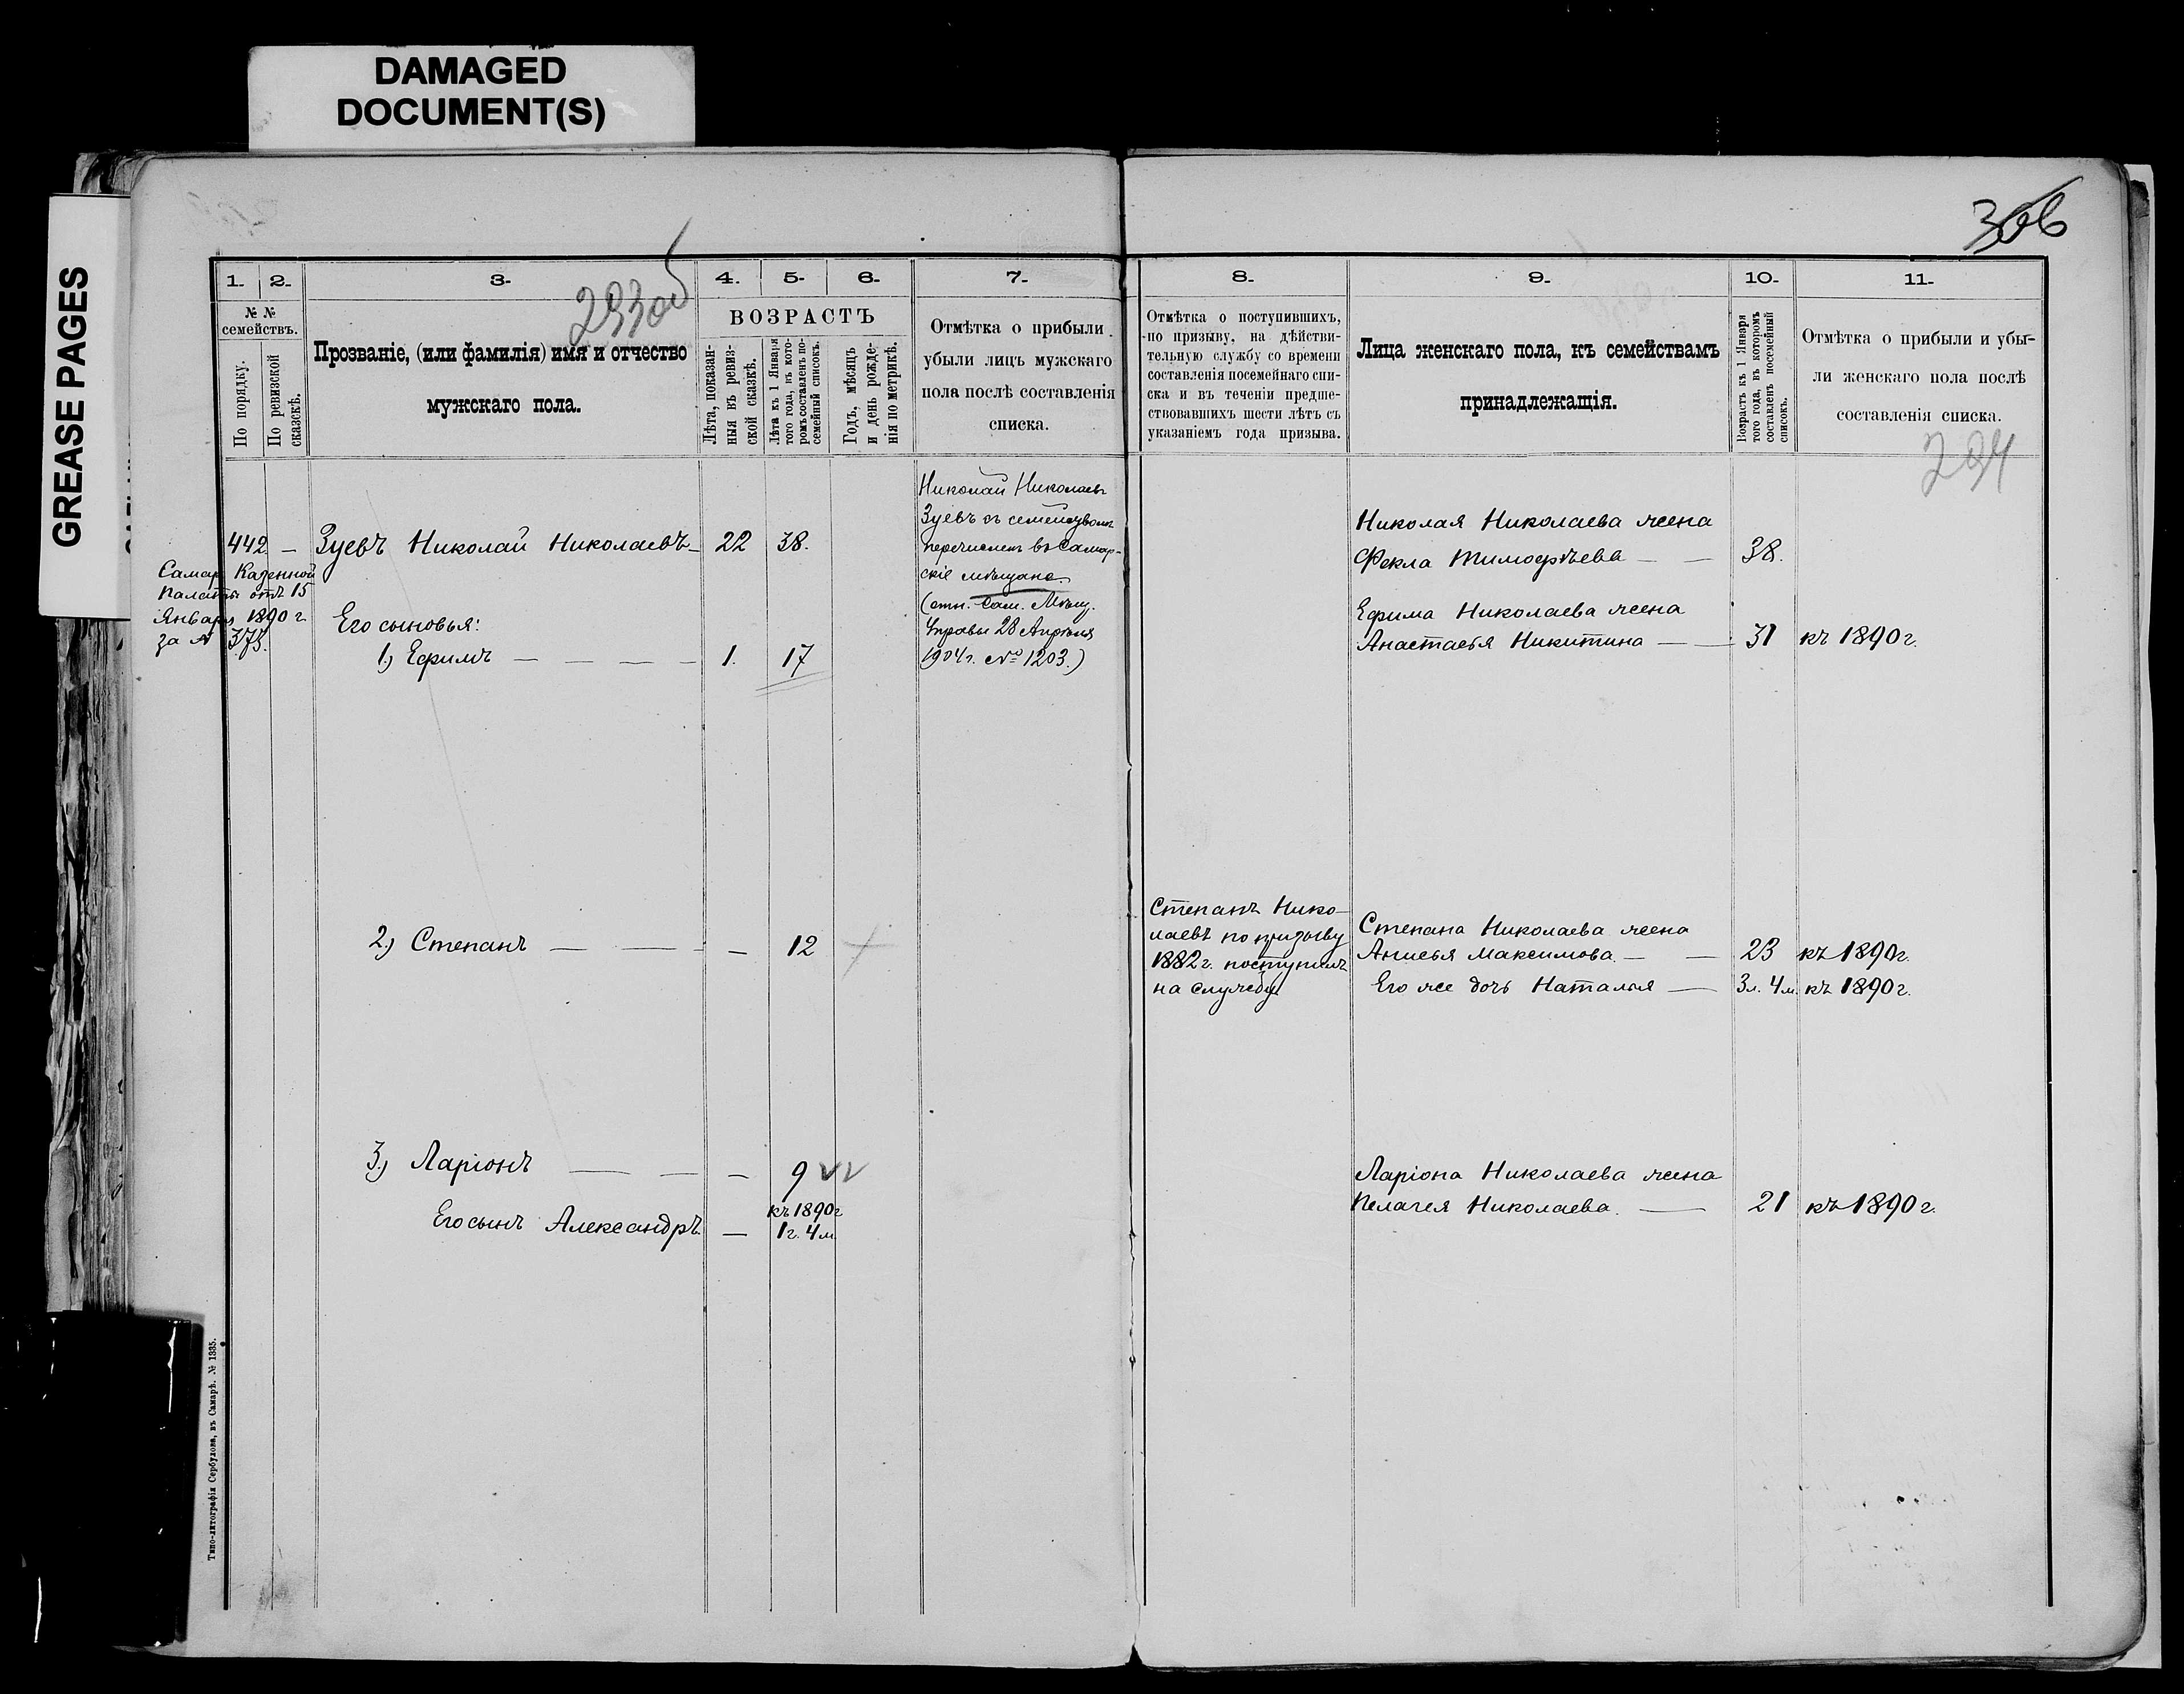 DAMAGED
DOCUMENT(S)
GREASE PAGES
306
293об
294
1.
2.
3.
4.
5.
6.
7.
8.
9.
10.
11.
№ №
семействъ.
По порядку.
По ревизской
сказкѣ.
Прозваніе, (или фамилія) имя и отчество
мужскаго пола.
ВОЗРАСТЪ
Лѣта, показан-
ныя въ ревиз-
ской сказкѣ.
Лѣта къ 1 Января
того года, въ кото-
ромъ составленъ по-
семейный списокъ.
Годъ, мѣсяцъ
и день рожде-
нія по метрикѣ.
Отмѣтка о прибыли
убыли лицъ мужскаго
пола послѣ составленія
списка.
Отмѣтка о поступившихъ,
по призыву, на дѣйстви-
тельную службу со времени
составленія посемейнаго спи-
ска и въ теченіи предше-
ствовавшихъ шести лѣтъ съ
указаніемъ года призыва.
Лица женскаго пола, къ семействамъ
принадлежащія.
Возрастъ къ 1 Января
того года, въ которомъ
составленъ посемейный
списокъ.
Отмѣтка о прибыли и убы-
ли женскаго пола послѣ
составленія списка.
442 — Зуевъ Николай Николаевъ — 22 38.
Самар. Казенной
Палаты отъ 15
Января 1890 г.
за № 375.
Его сыновья:
1.) Ефимъ — — — — 1. 17
Николай Николаевъ
Зуевъ съ семействомъ
перечисленъ въ Самар-
скіе мѣщане.
(отн. Сам. Мѣщ.
Управы 28 Апрѣля
1904 г. № 1203.)
Николая Николаева жена
Фекла Тимофѣева — — 38.
Ефима Николаева жена
Анастасья Никитина — — 31 къ 1890 г.
2.) Степанъ — — — 12
Степанъ Нико-
лаевъ по призыву
1882 г. поступилъ
на службу
Степана Николаева жена
Анисья Максимова — — 23 къ 1890 г.
Его же дочь Наталья — 3 л. 4 м. къ 1890 г.
3.) Ларіонъ — — — 9
Его сынъ Александръ. — къ 1890 г
1 г. 4 м.
Ларіона Николаева жена
Пелагея Николаева. — 21 къ 1890 г.
Типо-литографія Сербулова, въ Самарѣ. № 1335.